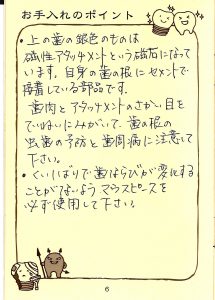 お手入れのポイント
・上の歯の銀色のものは
磁性アタッチメントという磁石になって
います。自身の歯の根にセメントで
接着している部品です。
歯肉とアタッチメントのさかい目を
ていねいにみがいて、歯の根の
虫歯の予防と歯周病に注意して
下さい。
・くいしばりで歯ならびが変化する
ことがないようマウスピースを
必ず使用して下さい。
6